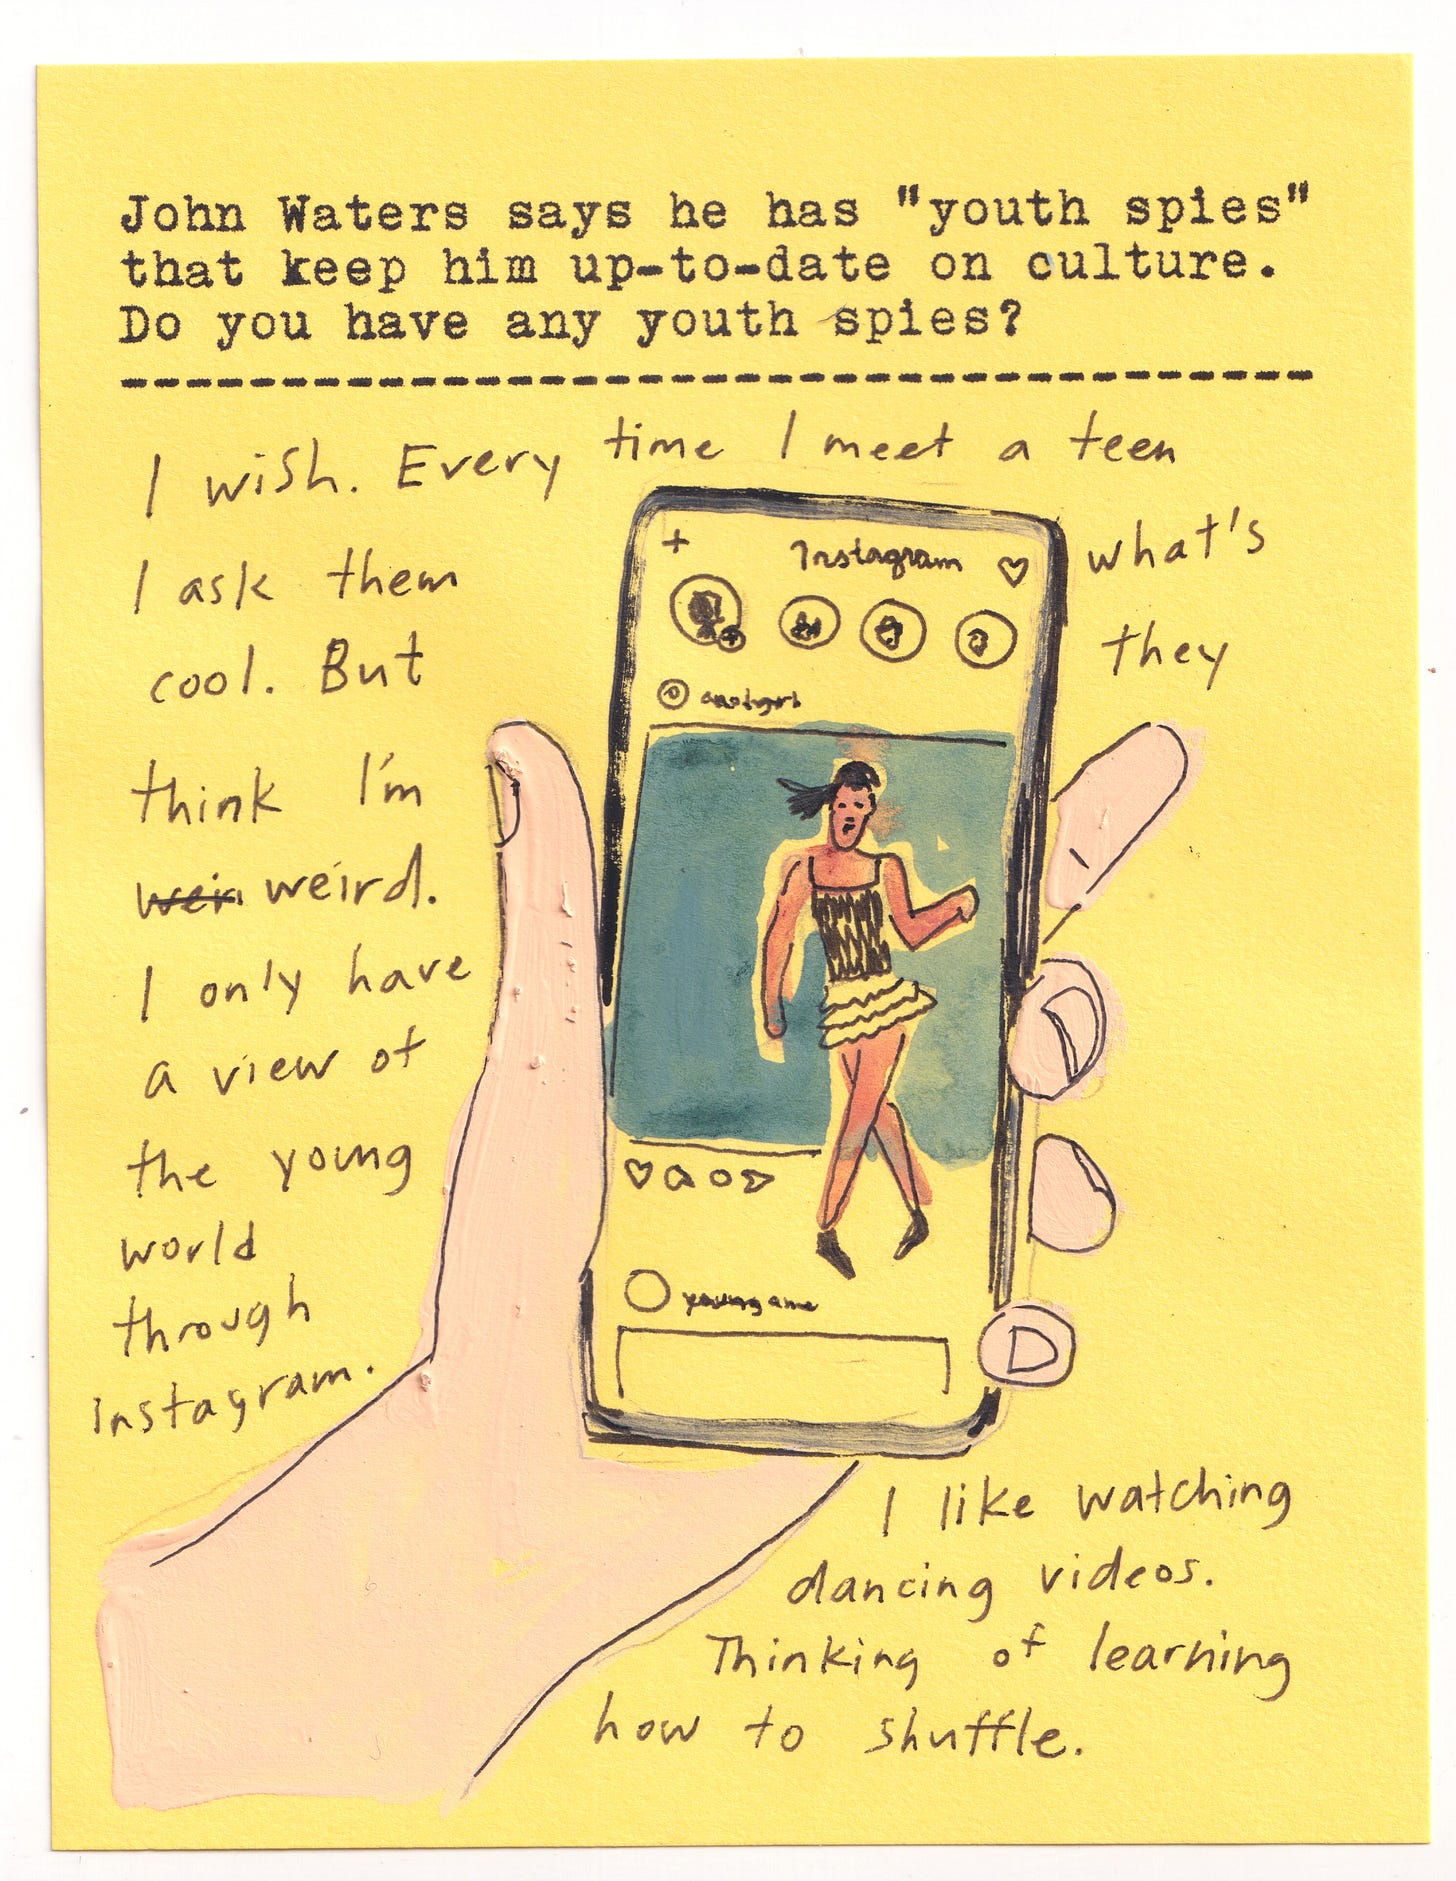 John Waters says he has "youth spies"
that keep him up-to-date on culture.
Do you have any youth spies?
I wish. Every time I meet a teen
I ask them what's
cool. But they
think I'm
weird.
I only have
a view of
the young
world
through
instagram.
+ Instagram
I like watching
dancing videos.
Thinking of learning
how to shuffle.